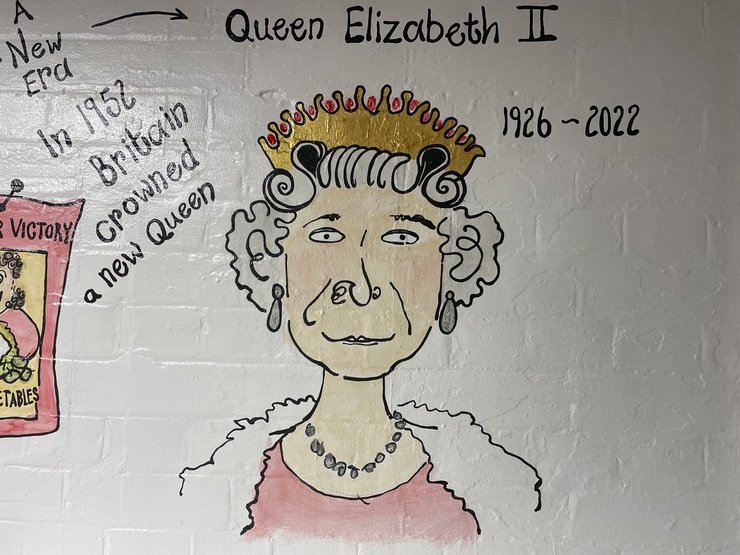 A
New
Era
Queen Elizabeth II
1926 ~ 2022
In 1952
Britain
crowned
a new Queen
VICTORY